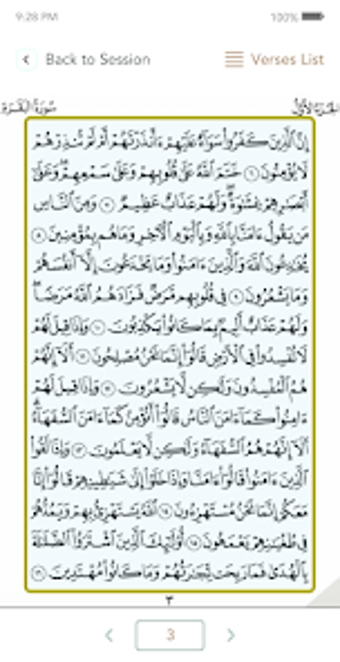 9:28 PM 100%
Back to Session Verses List
سورة البقرة الجزء الأول
إن الذين كفروا سواء عليهم ءأنذرتهم أم لم تنذرهم
لا يؤمنون ٦ ختم الله على قلوبهم وعلى سمعهم وعلى
أبصرهم غشوة ولهم عذاب عظيم ٧ ومن الناس
من يقول ءامنا بالله وباليوم الآخر وما هم بمؤمنين ٨
يخدعون الله والذين ءامنوا وما يخدعون إلا أنفسهم
وما يشعرون ٩ في قلوبهم مرض فزادهم الله مرضا
ولهم عذاب أليم بما كانوا يكذبون ١٠ وإذا قيل لهم
لا تفسدوا في الأرض قالوا إنما نحن مصلحون ١١ ألا إنهم
هم المفسدون ولكن لا يشعرون ١٢ وإذا قيل لهم
ءامنوا كما ءامن الناس قالوا أنؤمن كما ءامن السفهاء
ألا إنهم هم السفهاء ولكن لا يعلمون ١٣ وإذا لقوا
الذين ءامنوا قالوا ءامنا وإذا خلوا إلى شيطينهم قالوا إنا
معكم إنما نحن مستهزءون ١٤ الله يستهزئ بهم ويمدهم
في طغينهم يعمهون ١٥ أولئك الذين اشتروا الضللة
بالهدى فما ربحت تجرتهم وما كانوا مهتدين ١٦
٣
3